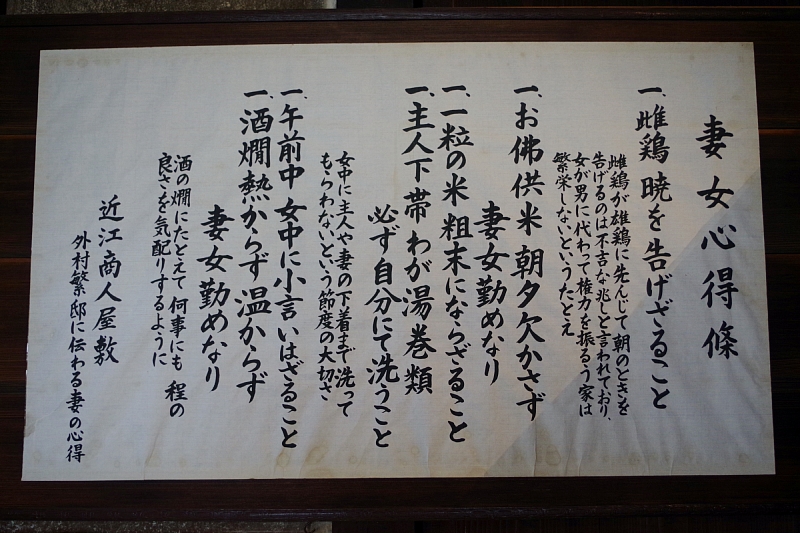 妻女心得條
一、雌鶏 暁を告げざること
雌鶏が雄鶏に先んじて 朝のときを
告げるのは不吉な兆しと言われており、
女が男に代わって権力を振るう家は
繁栄しないというたとえ
一、お佛供米 朝夕欠かさず
妻女勤めなり
一、一粒の米 粗末にならざること
一、主人下帯 わが湯巻類
必ず自分にて洗うこと
女中に主人や妻の下着まで洗って
もらわないという節度の大切さ
一、午前中 女中に小言いはざること
一、酒燗熱からず 温からず
妻女勤めなり
酒の燗にたとえて 何事にも 程の
良さを気配りするように
近江商人屋敷
外村繁邸に伝わる妻の心得